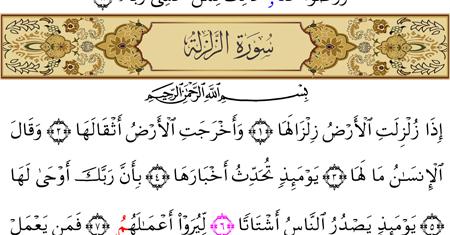 سُورَةُ الزَّلْزَلَةِ
بِسْمِ ٱللَّهِ ٱلرَّحْمَٰنِ ٱلرَّحِيمِ
إِذَا زُلْزِلَتِ ٱلْأَرْضُ زِلْزَالَهَا ﴿١﴾ وَأَخْرَجَتِ ٱلْأَرْضُ أَثْقَالَهَا ﴿٢﴾ وَقَالَ
ٱلْإِنسَٰنُ مَا لَهَا ﴿٣﴾ يَوْمَئِذٍ تُحَدِّثُ أَخْبَارَهَا ﴿٤﴾ بِأَنَّ رَبَّكَ أَوْحَىٰ لَهَا
﴿٥﴾ يَوْمَئِذٍ يَصْدُرُ ٱلنَّاسُ أَشْتَاتًا ﴿٦﴾ لِّيُرَوْا۟ أَعْمَٰلَهُمْ ﴿٧﴾ فَمَن يَعْمَلْ